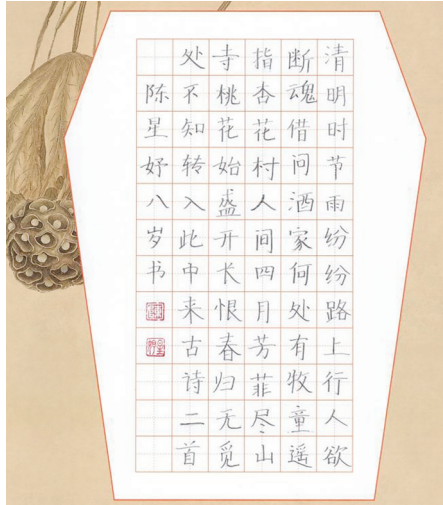 清明时节雨纷纷路上行人欲
断魂借问酒家何处有牧童遥
指杏花村人间四月芳菲尽山
寺桃花始盛开长恨春归无觅
处不知转入此中来古诗二首
陈星妤八岁书